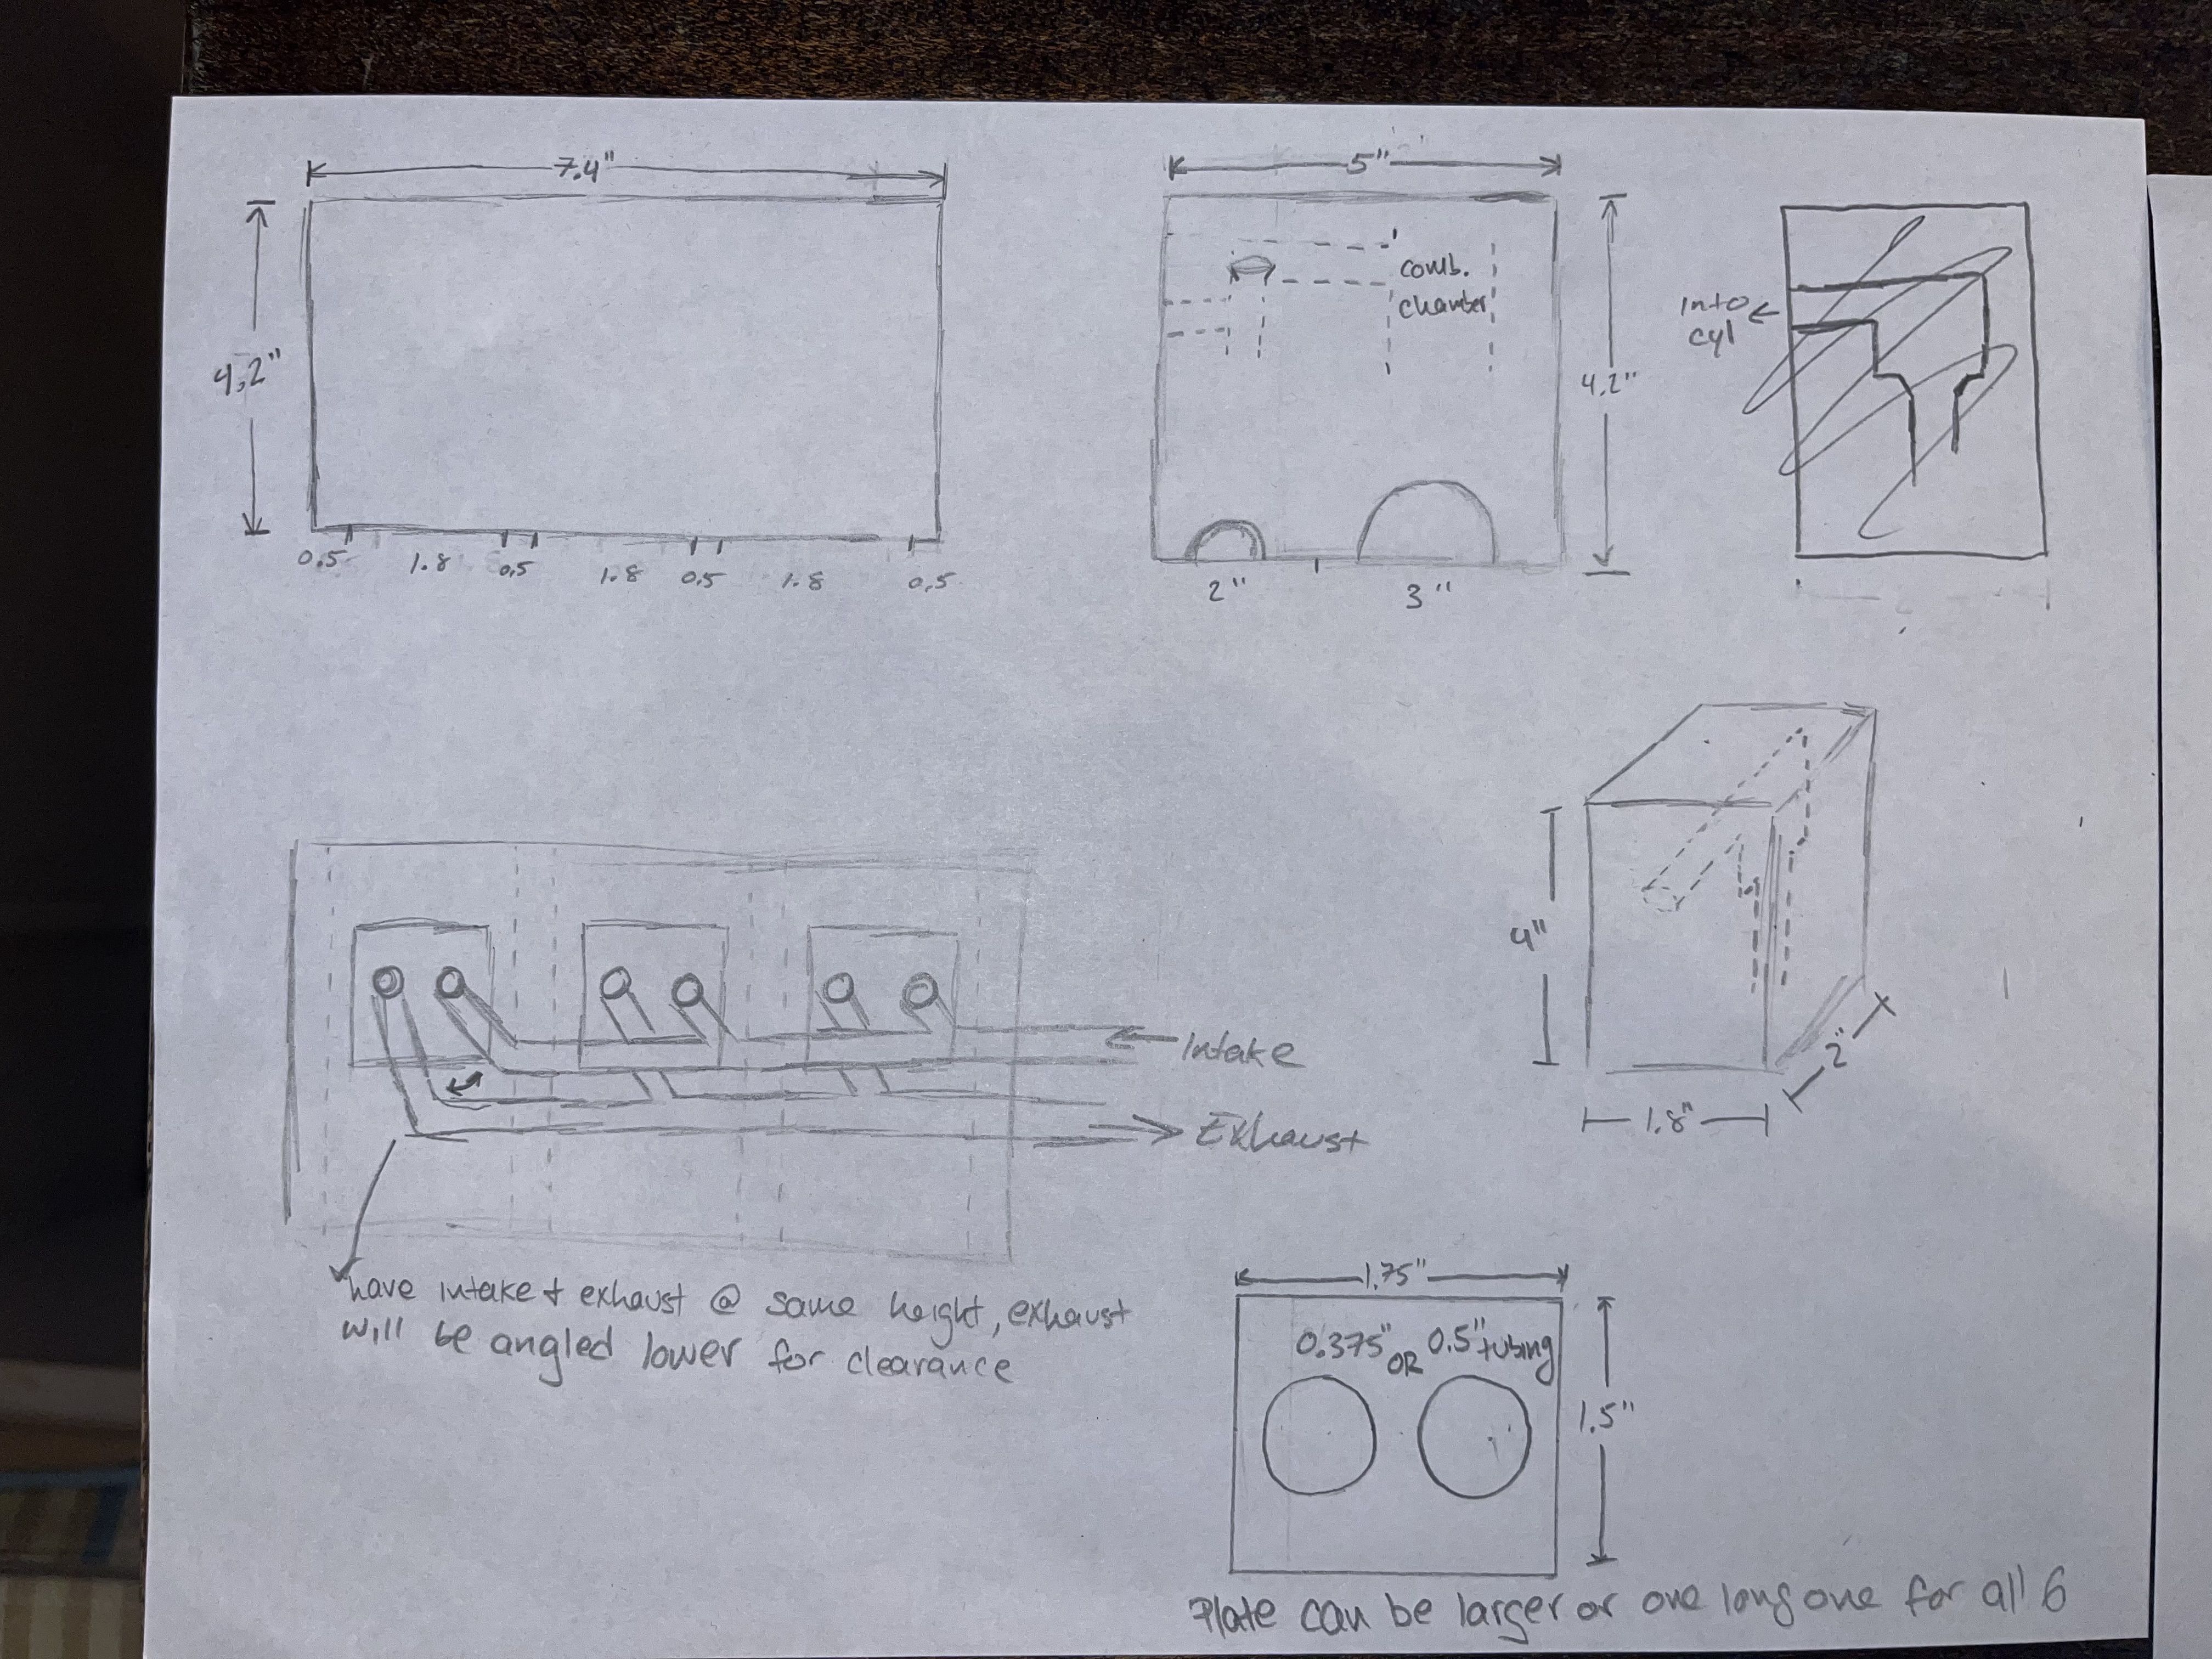 7.4"
4.2"
0.5 1.8 0.5 1.8 0.5 1.8 0.5
5"
comb.
chamber
4.2"
2" 3"
Into
cyl
Intake
Exhaust
have intake + exhaust @ same height, exhaust
will be angled lower for clearance
4"
1.8"
2"
1.75"
0.375" OR 0.5" tubing
1.5"
Plate can be larger or one long one for all 6